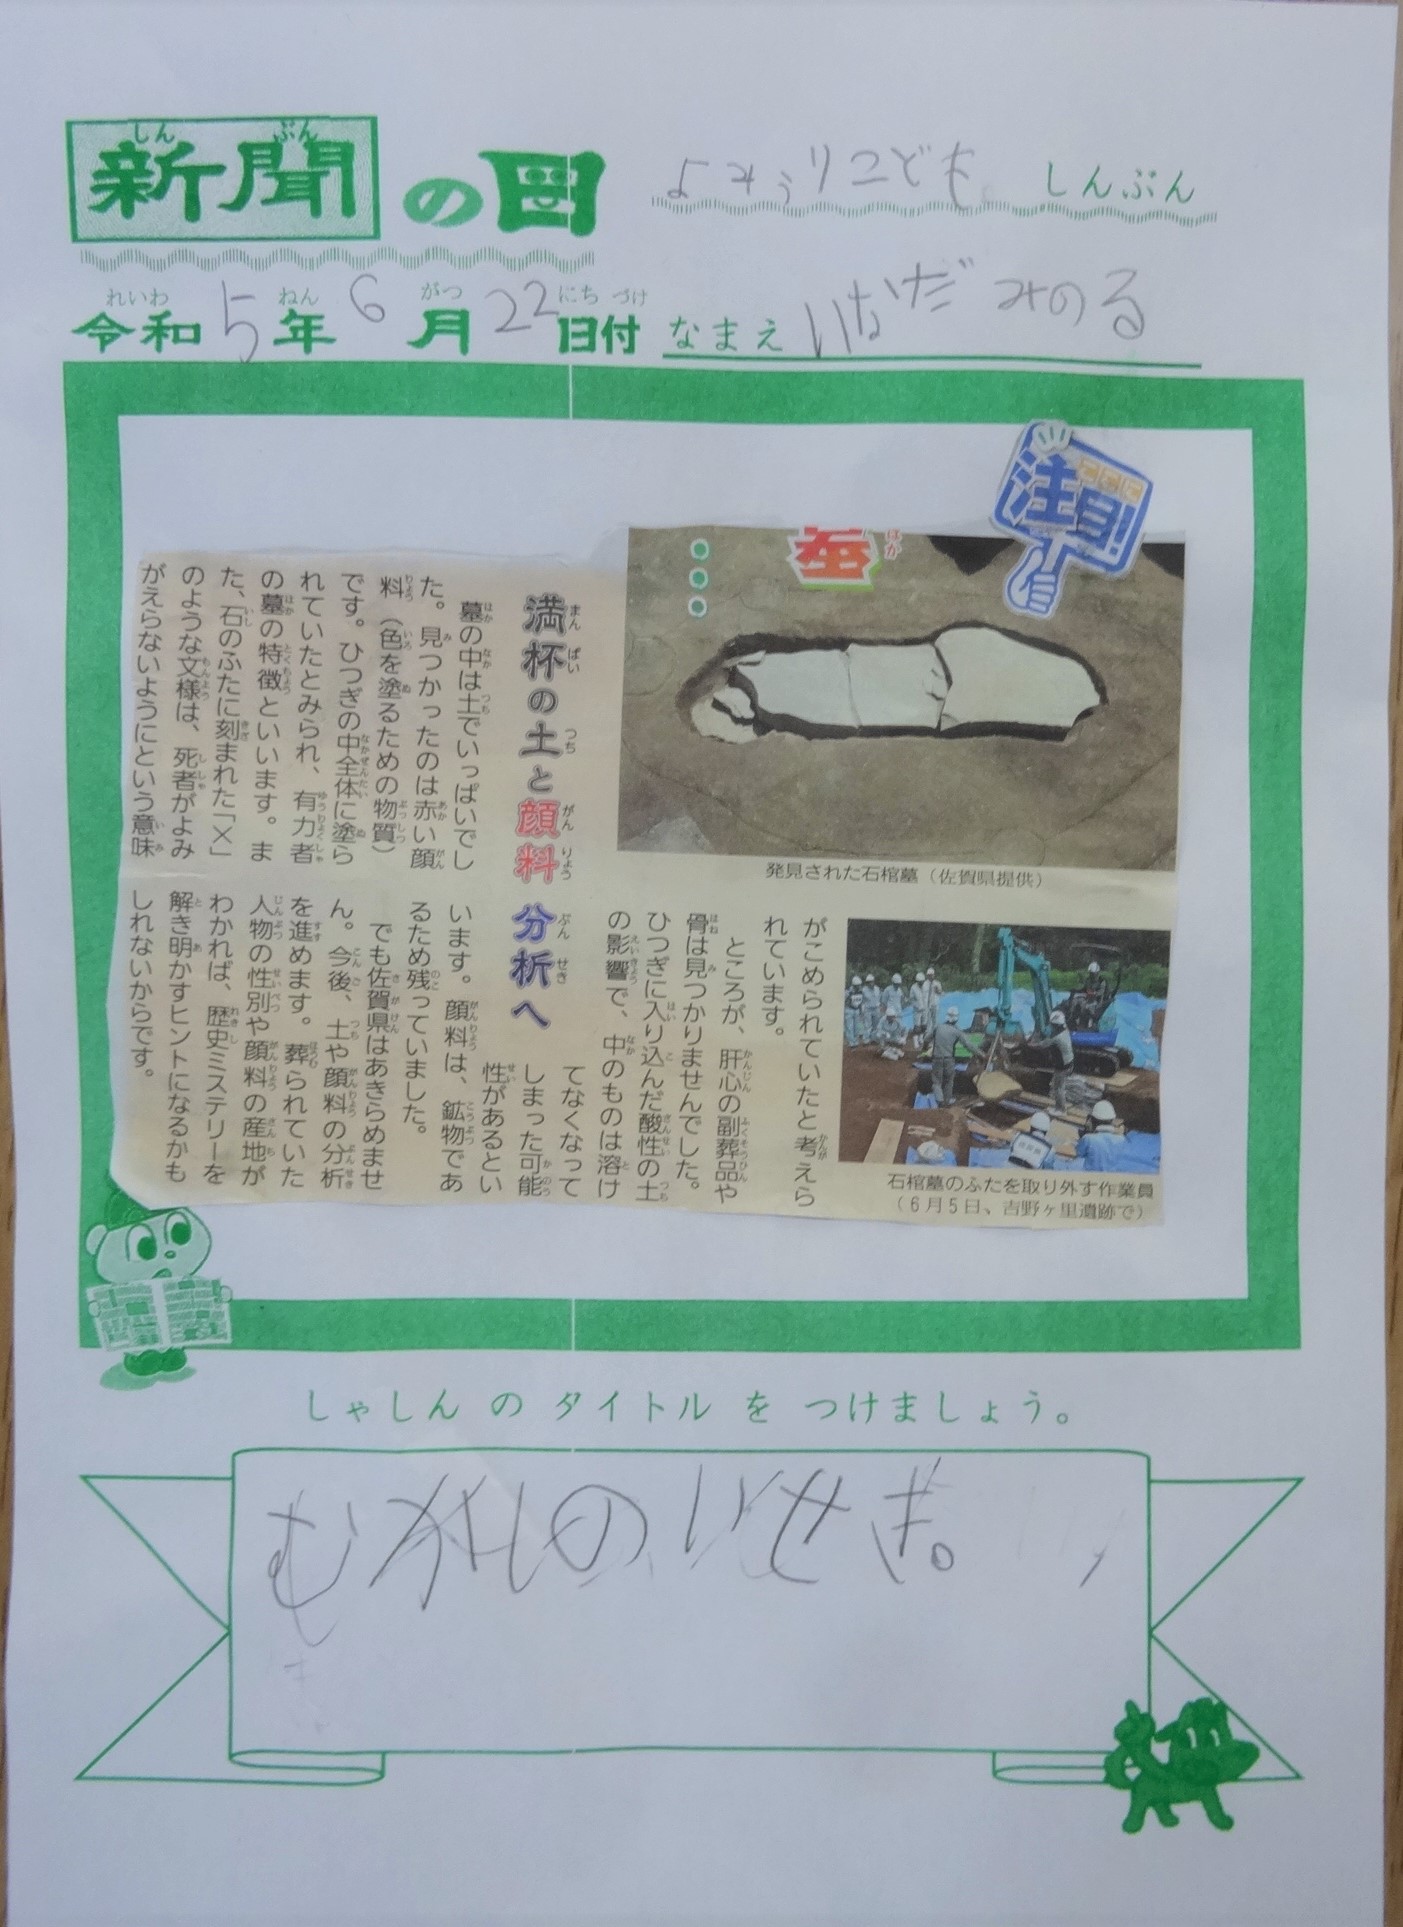 新聞の日
しん ぶん
よみうりこども しんぶん
れいわ ねん がつ にち づけ
令和5年6月22日付 なまえ いなだ みのる
ここに
注目!
墓
はか
発見された石棺墓（佐賀県提供）
満杯の土と顔料 分析へ
墓の中は土でいっぱいでし
た。見つかったのは赤い顔
料（色を塗るための物質）
です。ひつぎの中全体に塗ら
れていたとみられ、有力者
の墓の特徴といいます。ま
た、石のふたに刻まれた「×」
のような文様は、死者がよみ
がえらないようにという意味
がこめられていたと考えら
れています。
ところが、肝心の副葬品や
骨は見つかりませんでした。
ひつぎに入り込んだ酸性の土
の影響で、中のものは溶け
てなくなって
しまった可能
性があるとい
います。顔料は、鉱物であ
るため残っていました。
でも佐賀県はあきらめませ
ん。今後、土や顔料の分析
を進めます。葬られていた
人物の性別や顔料の産地が
わかれば、歴史ミステリーを
解き明かすヒントになるかも
しれないからです。
石棺墓のふたを取り外す作業員
（6月5日、吉野ヶ里遺跡で）
しゃしん の タイトル を つけましょう。
むかしのいせき。